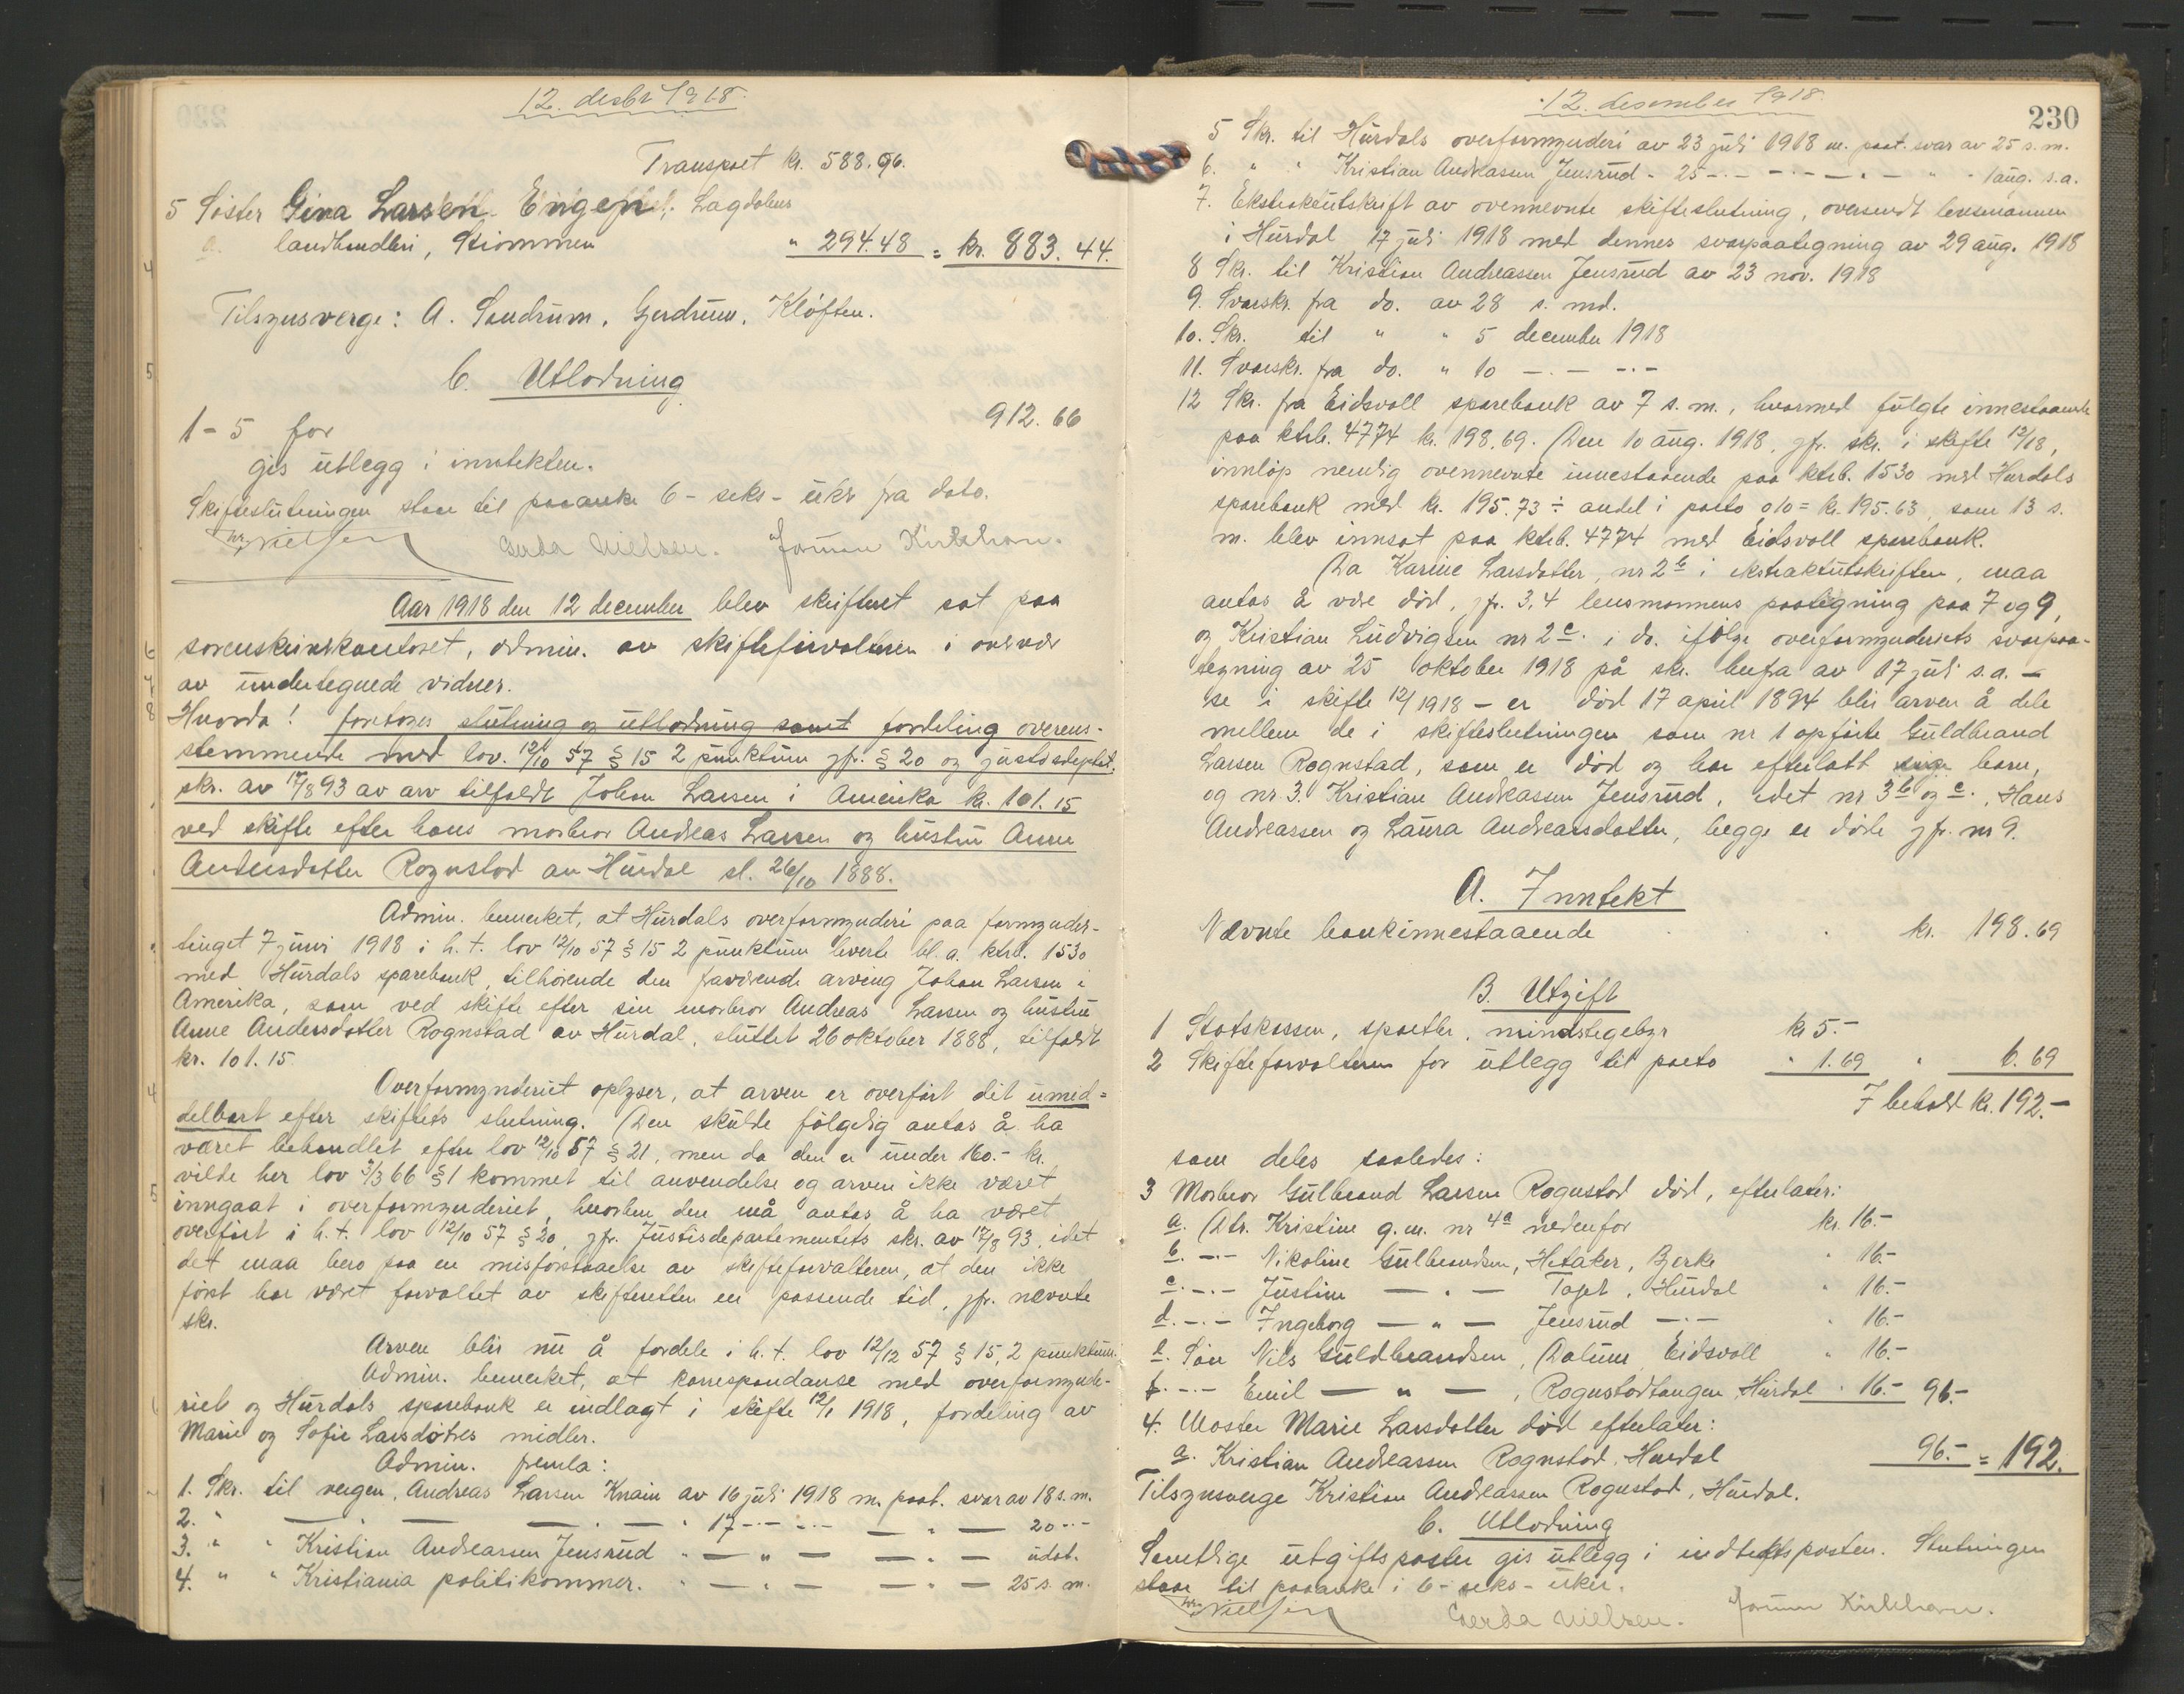 12. desbr 1918.
Transport kr. 588.96.
5 Søster Gina Larsen Engen, Lagdalens
a. landhandleri, Strømmen " 294.48 = kr. 883.44.
Tilsynsverge: A. Sandrum, Gjerdrum, Kløften.
C. Utlodning
1-5 for 912.66
gis utlegg i inntekten.
Skifteslutningen staar til paaanke 6 - seks - uker fra dato.
Nielsen Gerda Nielsen. Jørnun Kirkhorn.
Aar 1918 den 12 december blev skifteret sat paa
sorenskriverkontoret, admin. av skifteforvalteren i overvær
av undertegnede vidner.
Hvorda! foretoges slutning og utlodning samt fordeling overens-
stemmende med lov. 12/10 57 § 15 2 punktum jfr. § 20 og justisdeptet.
skr. av 17/8 93 av arv tilfaldt Johan Larsen i Amerika kr. 101.15
ved skifte efter hans morbror Andreas Larsen og hustru Anne
Andersdatter Rognstad av Hurdal sl. 26/10 1888.
Admin. bemerket, at Hurdals overformynderi paa formynder-
tinget 7 juni 1918 i h. t. lov 12/10 57 § 15 2 punktum leverte bl. a. ktrb. 1530
med Hurdals sparebank, tilhørende den fraværende arving Johan Larsen i
Amerika, som ved skifte efter sin morbror Andreas Larsen og hustru
Anne Andersdatter Rognstad av Hurdal, sluttet 26 oktober 1888, tilfaldt
kr. 101.15
Overformynderiet oplyser, at arven er overført dit umid=
delbart efter skiftets slutning. Den skulde følgelig antas å ha
været behandlet efter lov 12/10 57 § 21, men da den er under 160.- kr.
vilde her lov 3/3 66 § 1 kommet til anvendelse og arven ikke været
inngaat i overformynderiet, hvorfor den må antas å ha været
overført i h. t. lov 12/10 57 § 20, jfr. Justisdepartementets skr. av 17/8 93, idet
det maa bero paa en misforstaaelse av skifteforvalteren, at den ikke
først har været forvaltet av skifteretten en passende tid, jfr. nævnte
skr.
Arven blir nu å fordele i h. t. lov 12/12 57 § 15, 2 punktum.
Admin. bemerket, at korrespondanse med overformynde-
riet og Hurdals sparebank er indlagt i skifte 12/1 1918, fordeling av
Marie og Sofie Larsdøtres midler.
Admin. fremla:
1. Skr. til vergen, Andreas Larsen Knain av 16 juli 1918 m. paat. svar av 18 s. m.
2. " — . — — . — " 17 -.- -.- — " — 20 -.-
3. " " Kristian Andreassen Jensrud " — " — — . — udat.
4. " " Kristiania politikammer. " — . — — . — 25 s. m.
12. desember 1918.
230
5 Skr. til Hurdals overformynderi av 23 juli 1918 m. paat. svar av 25 s. m.
6. " " Kristian Andreassen Jensrud - 25 -.- -.- — . — " - 1 aug. s.a.
7. Ekstraktutskrift av ovennevnte skifteslutning, oversendt lensmannen
i Hurdal 17 juli 1918 med dennes svarpaategning av 29 aug. 1918
8 Skr. til Kristian Andreassen Jensrud av 23 nov. 1918
9. Svarskr. fra do. av 28 s. md.
10. Skr. til " " 5 december 1918
11. Svarskr. fra do. " 10 -.- -.-
12 Skr. fra Eidsvoll sparebank av 7 s. m., hvormed fulgte innestaaende
paa ktrb. 4774 kr. 198.69. Den 10 aug. 1918, jfr. skr. i skifte 12/18,
innløp nemlig ovennevnte innestaaende paa ktrb. 1530 med Hurdals
sparebank med kr. 195.73 ÷ andel i porto o/10 = kr. 195.63, som 13 s.
m. blev innsat paa ktrb. 4774 med Eidsvoll sparebank.
Da Karine Larsdatter, nr 2 b i ekstraktutskriften, maa
antas å være død, jfr. 3, 4 lensmannens paategning paa 7 og 9,
og Kristian Ludvigsen nr 2 c. i do. ifølge overformynderiets svarpaa-
tegning av 25 oktober 1918 på skr. herfra av 17 juli s. a. —
se i skifte 12/1918 — er død 17 april 1894 blir arven å dele
mellem de i skifteslutningen som nr 1 opførte Guldbrand
Larsen Rognstad, som er død og har efterlatt sig barn,
og nr 3. Kristian Andreassen Jensrud, idet nr 3 b og c., Hans
Andreassen og Laura Andreasdatter, begge er døde jfr. nr 9.
A. Inntekt
Nævnte bankinnestaaende kr. 198.69
B. Utgift
1 Statskassen, sportler, mindstegebyr kr 5.-
2 Skifteforvalteren for utlegg til porto " 1.69 " 6.69
I behold kr. 192.-
som deles saaledes:
3 Morbror Gulbrand Larsen Rognstad død, efterlater:
a. Dtr. Kristine g. m. nr 4a nedenfor kr. 16.-
b. -.- Nikoline Gulbrandsen, Hetaker, Bjerke " 16.-
c. -.- Justine — . — Taget, Hurdal " 16.-
d. -.- Ingeborg — " — Jensrud -.- " 16.-
e. Søn Nils Guldbrandsen, Dalum, Eidsvoll " 16.-
f. -.- Emil — " — , Rognstadtangen Hurdal " 16.- 96.-
4. Moster Marie Larsdatter død efterlater:
a. Kristian Andreassen Rognstad, Hurdal 96.- = 192.
Tilsynsverge Kristian Andreassen Rognstad, Hurdal.
C. Utlodning
Samtlige utgiftsposter gis utlegg i indtektsposten. Slutningen
staar til paaanke i 6 - seks - uker.
Nielsen Gerda Nielsen. Jørnun Kirkhorn.